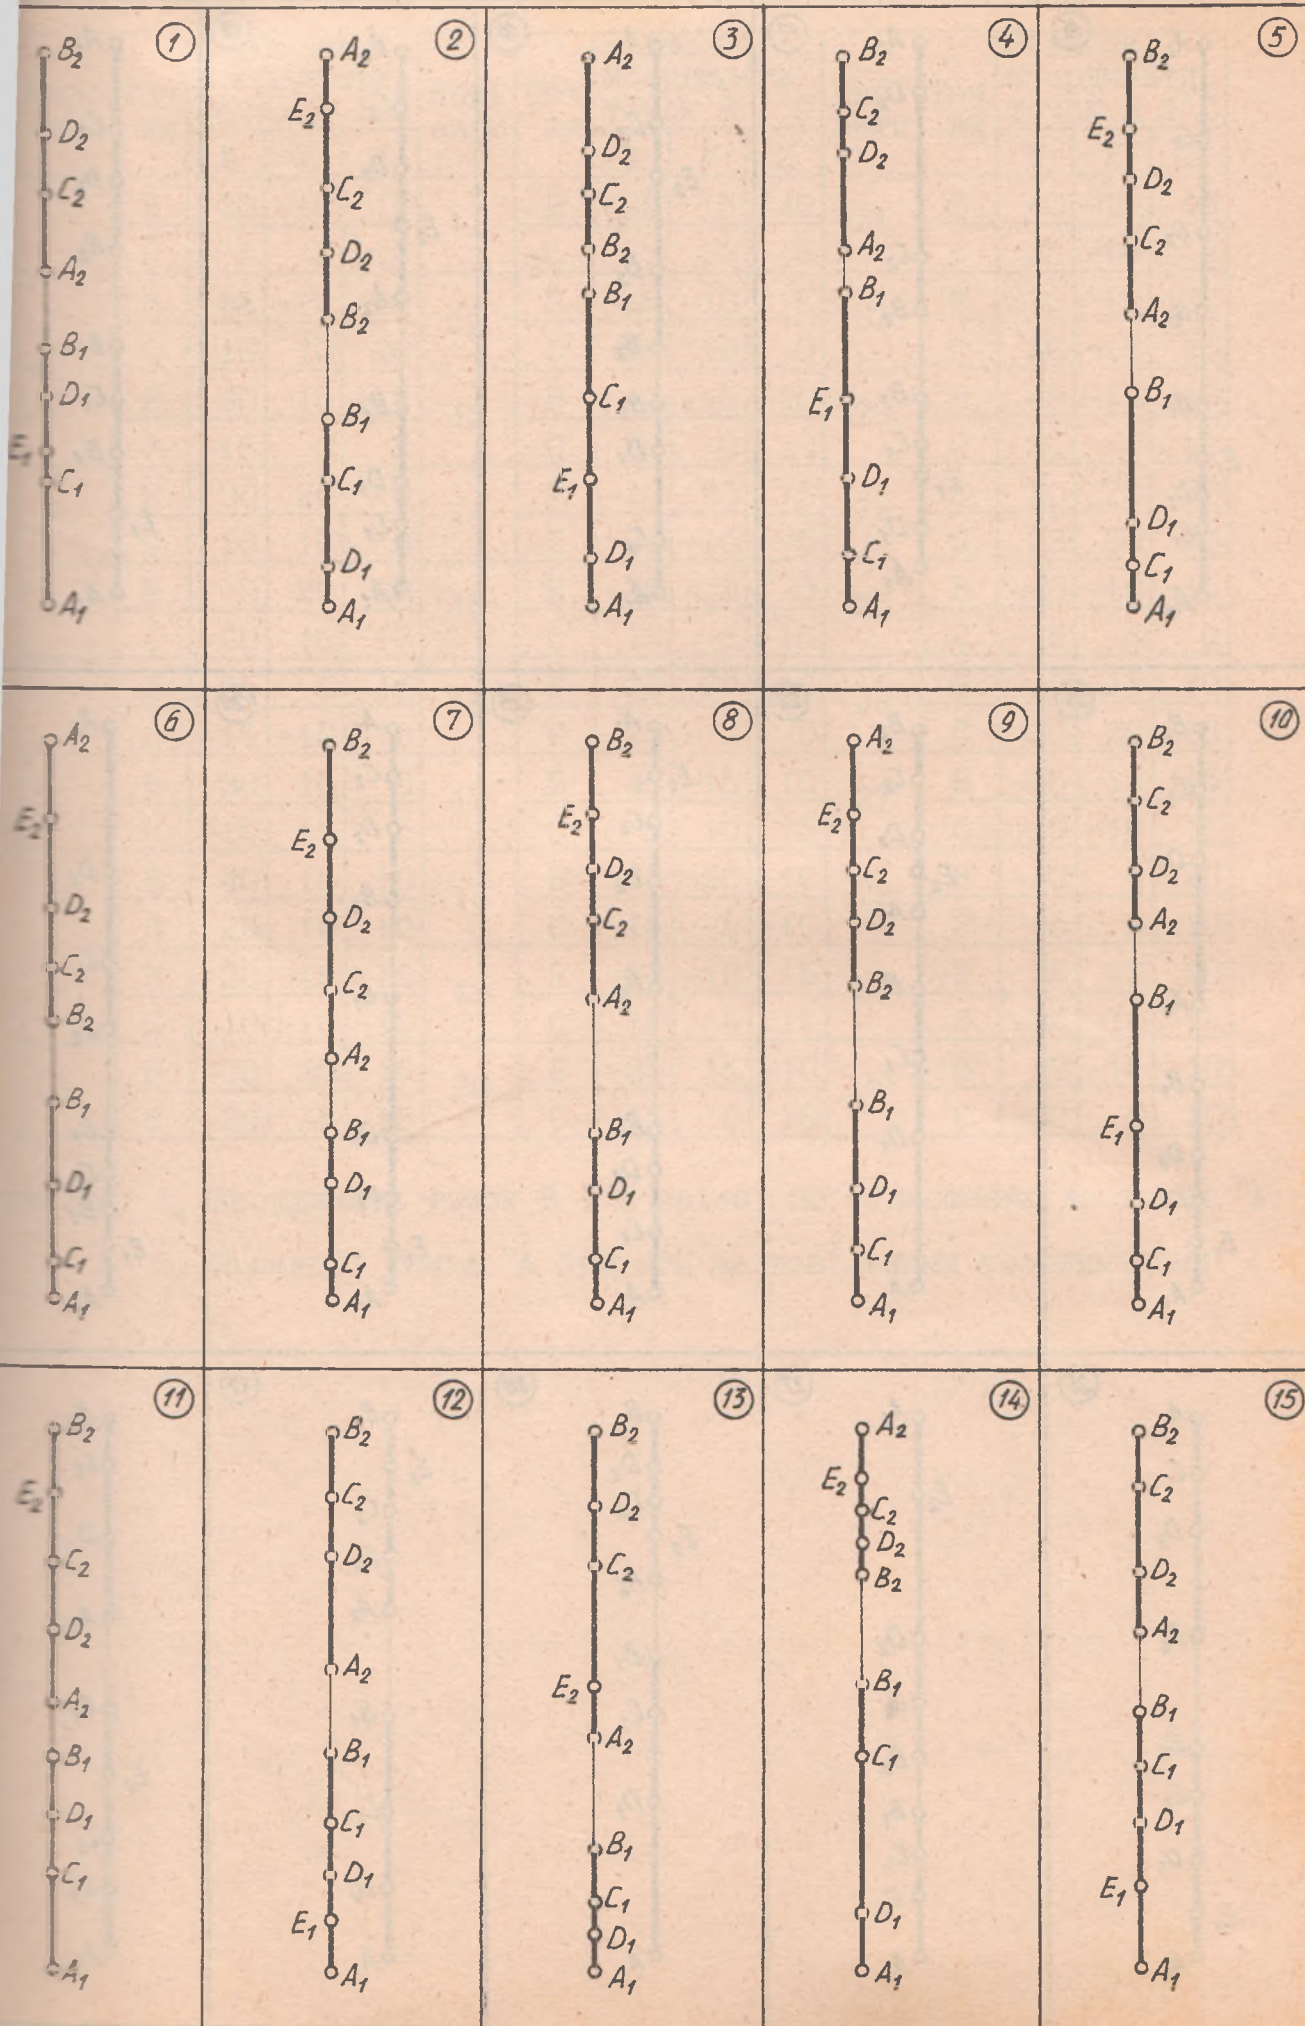 1
B₂
D₂
C₂
A₂
B₁
D₁
E₁
C₁
A₁
2
A₂
E₂
C₂
D₂
B₂
B₁
C₁
D₁
A₁
3
A₂
D₂
C₂
B₂
B₁
C₁
E₁
D₁
A₁
4
B₂
C₂
D₂
A₂
B₁
E₁
D₁
C₁
A₁
5
B₂
E₂
D₂
C₂
A₂
B₁
D₁
C₁
A₁
6
A₂
E₂
D₂
C₂
B₂
B₁
D₁
C₁
A₁
7
B₂
E₂
D₂
C₂
A₂
B₁
D₁
C₁
A₁
8
B₂
E₂
D₂
C₂
A₂
B₁
D₁
C₁
A₁
9
A₂
E₂
C₂
D₂
B₂
B₁
D₁
C₁
A₁
10
B₂
C₂
D₂
A₂
B₁
E₁
D₁
C₁
A₁
11
B₂
E₂
C₂
D₂
A₂
B₁
D₁
C₁
A₁
12
B₂
C₂
D₂
A₂
B₁
C₁
D₁
E₁
A₁
13
B₂
D₂
C₂
E₂
A₂
B₁
C₁
D₁
A₁
14
A₂
E₂
C₂
D₂
B₂
B₁
C₁
D₁
A₁
15
B₂
C₂
D₂
A₂
B₁
C₁
D₁
E₁
A₁